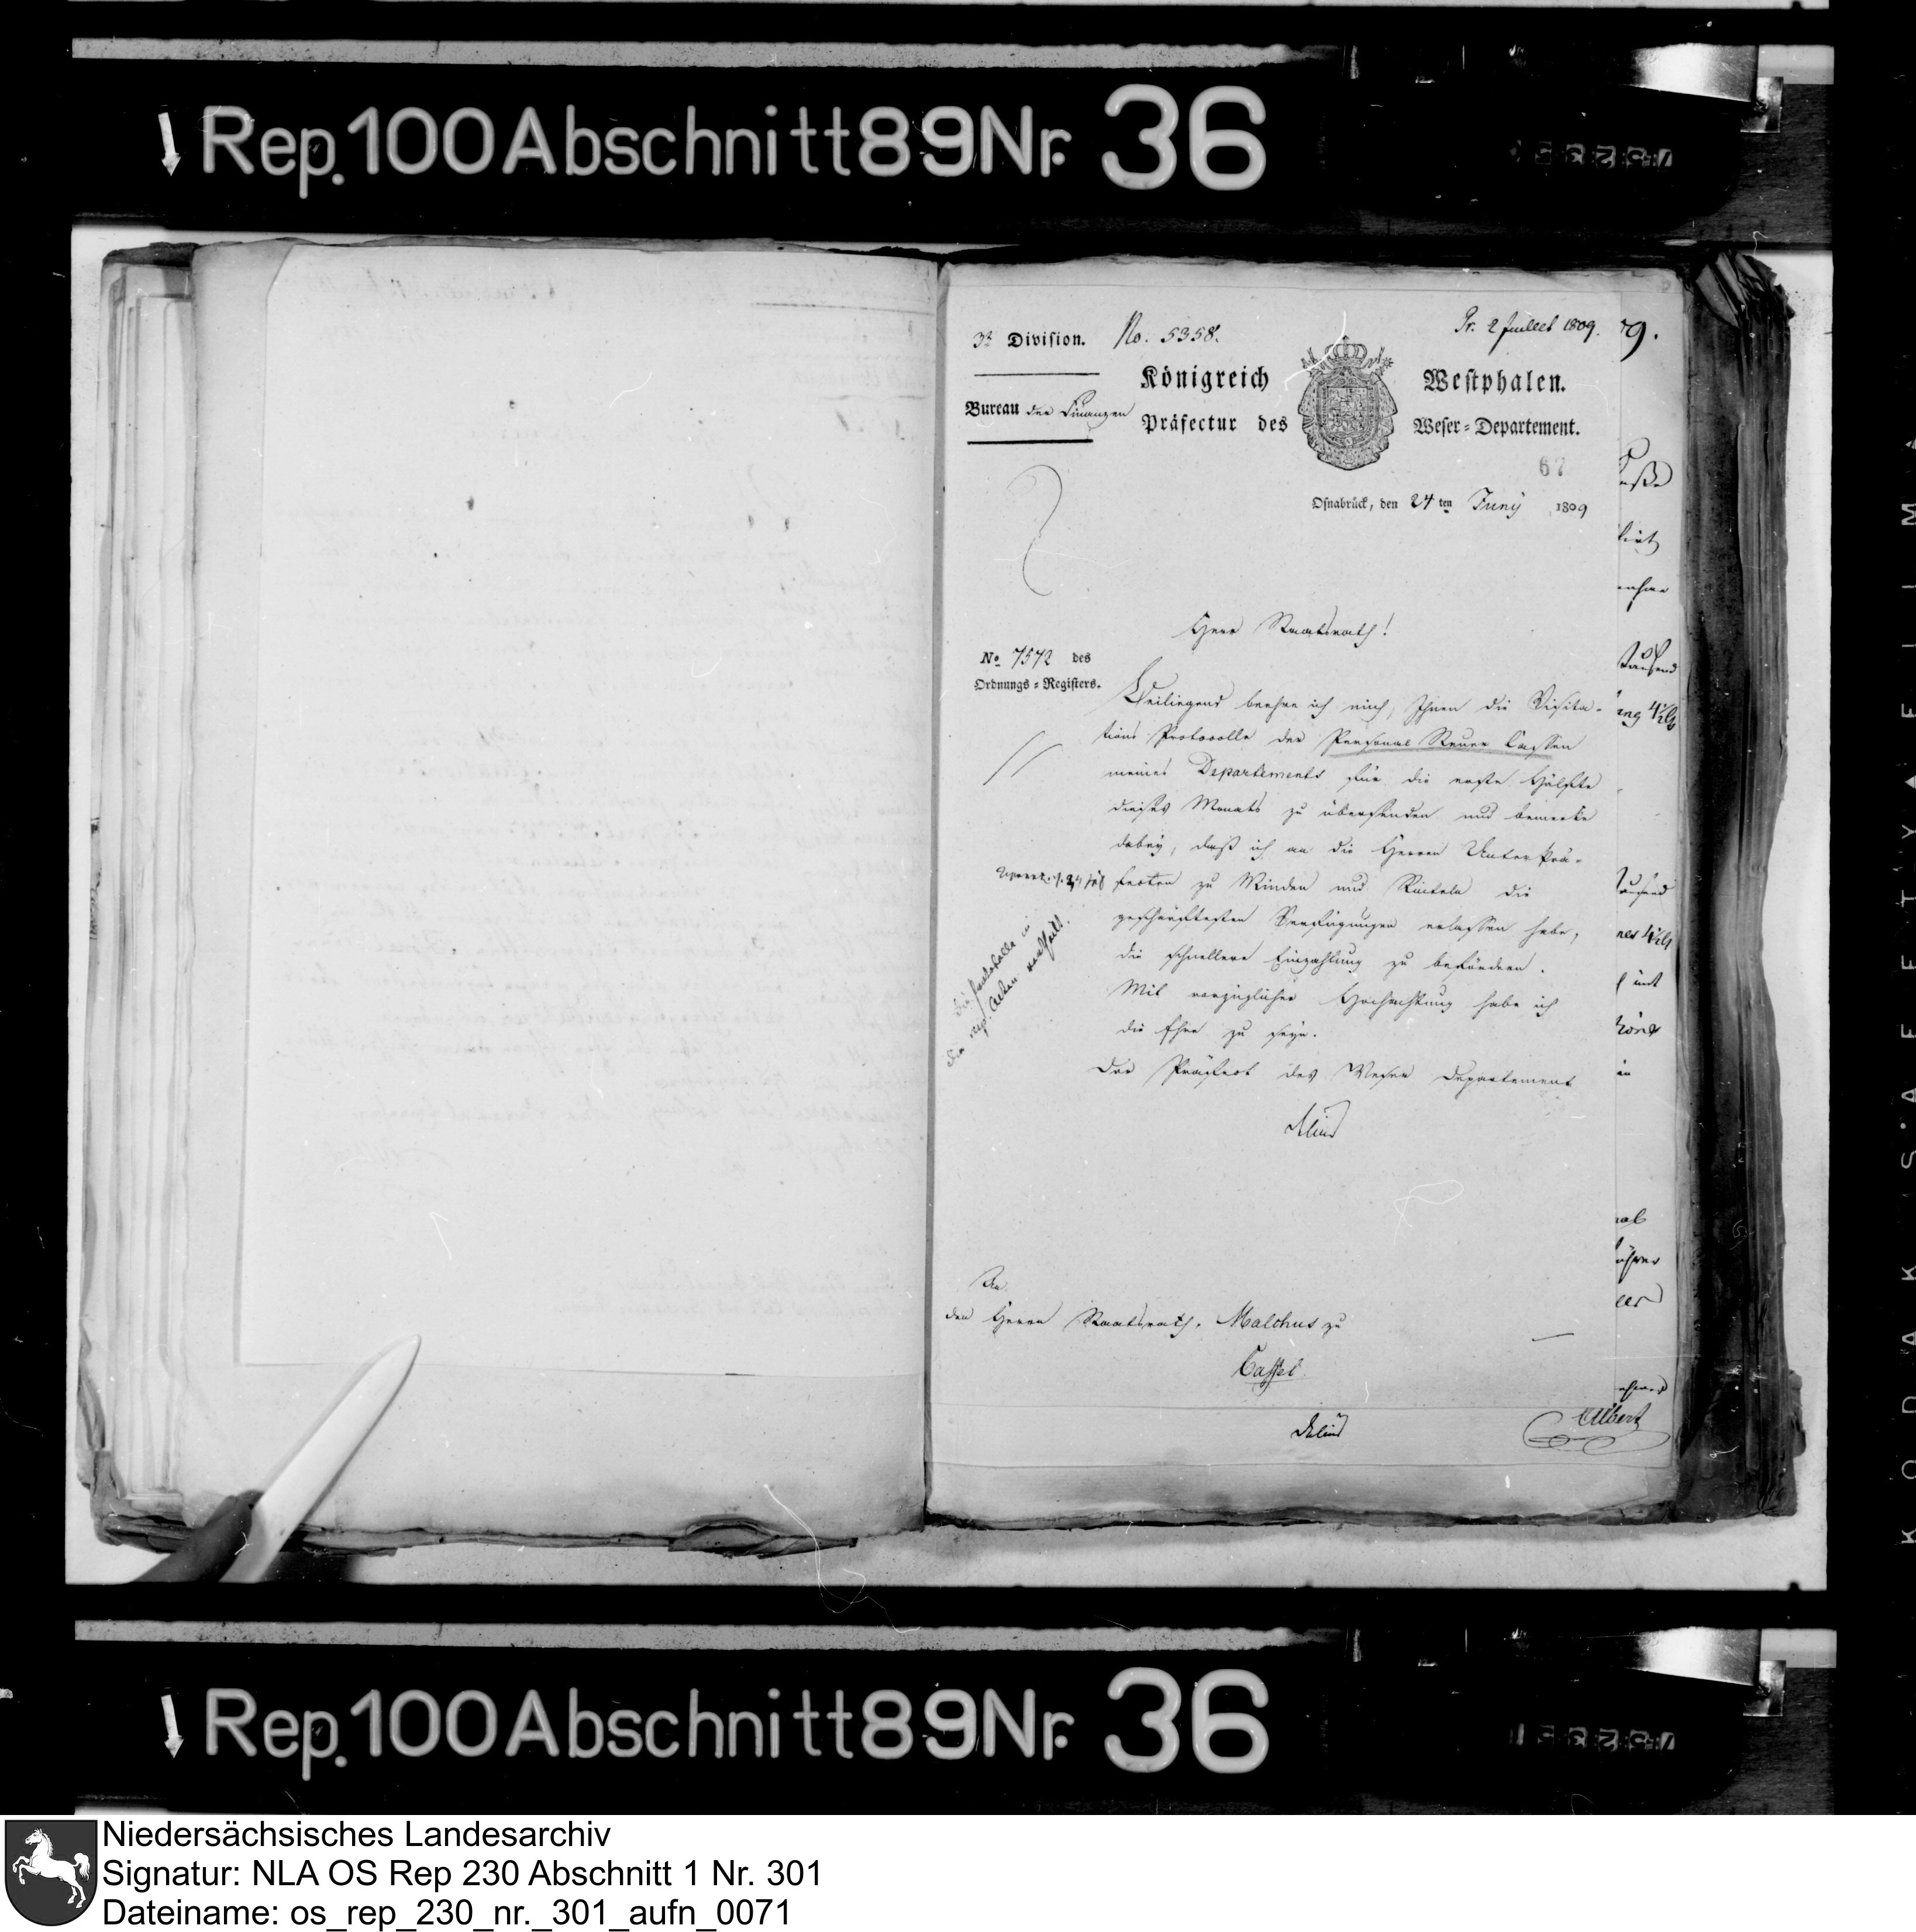 Rep. 100 Abschnitt 89 Nr. 36
3te Division. No. 5358.
Pr. 2 Juillet 1809.
Königreich Westphalen.
Bureau der Finanzen
Präfectur des Weser-Departement.
67
Osnabrück, den 24 ten Juny 1809
Herr Staatsrath!
No 7572 des
Ordnungs-Registers.
Beiliegend beehre ich mich, Ihnen die Visita-
tions Protocolle der Personal Steuer Cassen
meines Departements für die erste Hälfte
dieses Monats zu übersenden und bemerke
dabey, daß ich an die Herren Unterprä-
fecten zu Minden und Rinteln die
geschärftesten Verfügungen erlassen habe,
die schnellere Einzahlung zu befördern.
Mit vorzüglicher Hochachtung habe ich
die Ehre zu seyn.
Der Präfect des Weser Departement
An
den Herrn Staatsrath Malchus zu
Cassel.
Rep. 100 Abschnitt 89 Nr. 36
Niedersächsisches Landesarchiv
Signatur: NLA OS Rep 230 Abschnitt 1 Nr. 301
Dateiname: os_rep_230_nr._301_aufn_0071